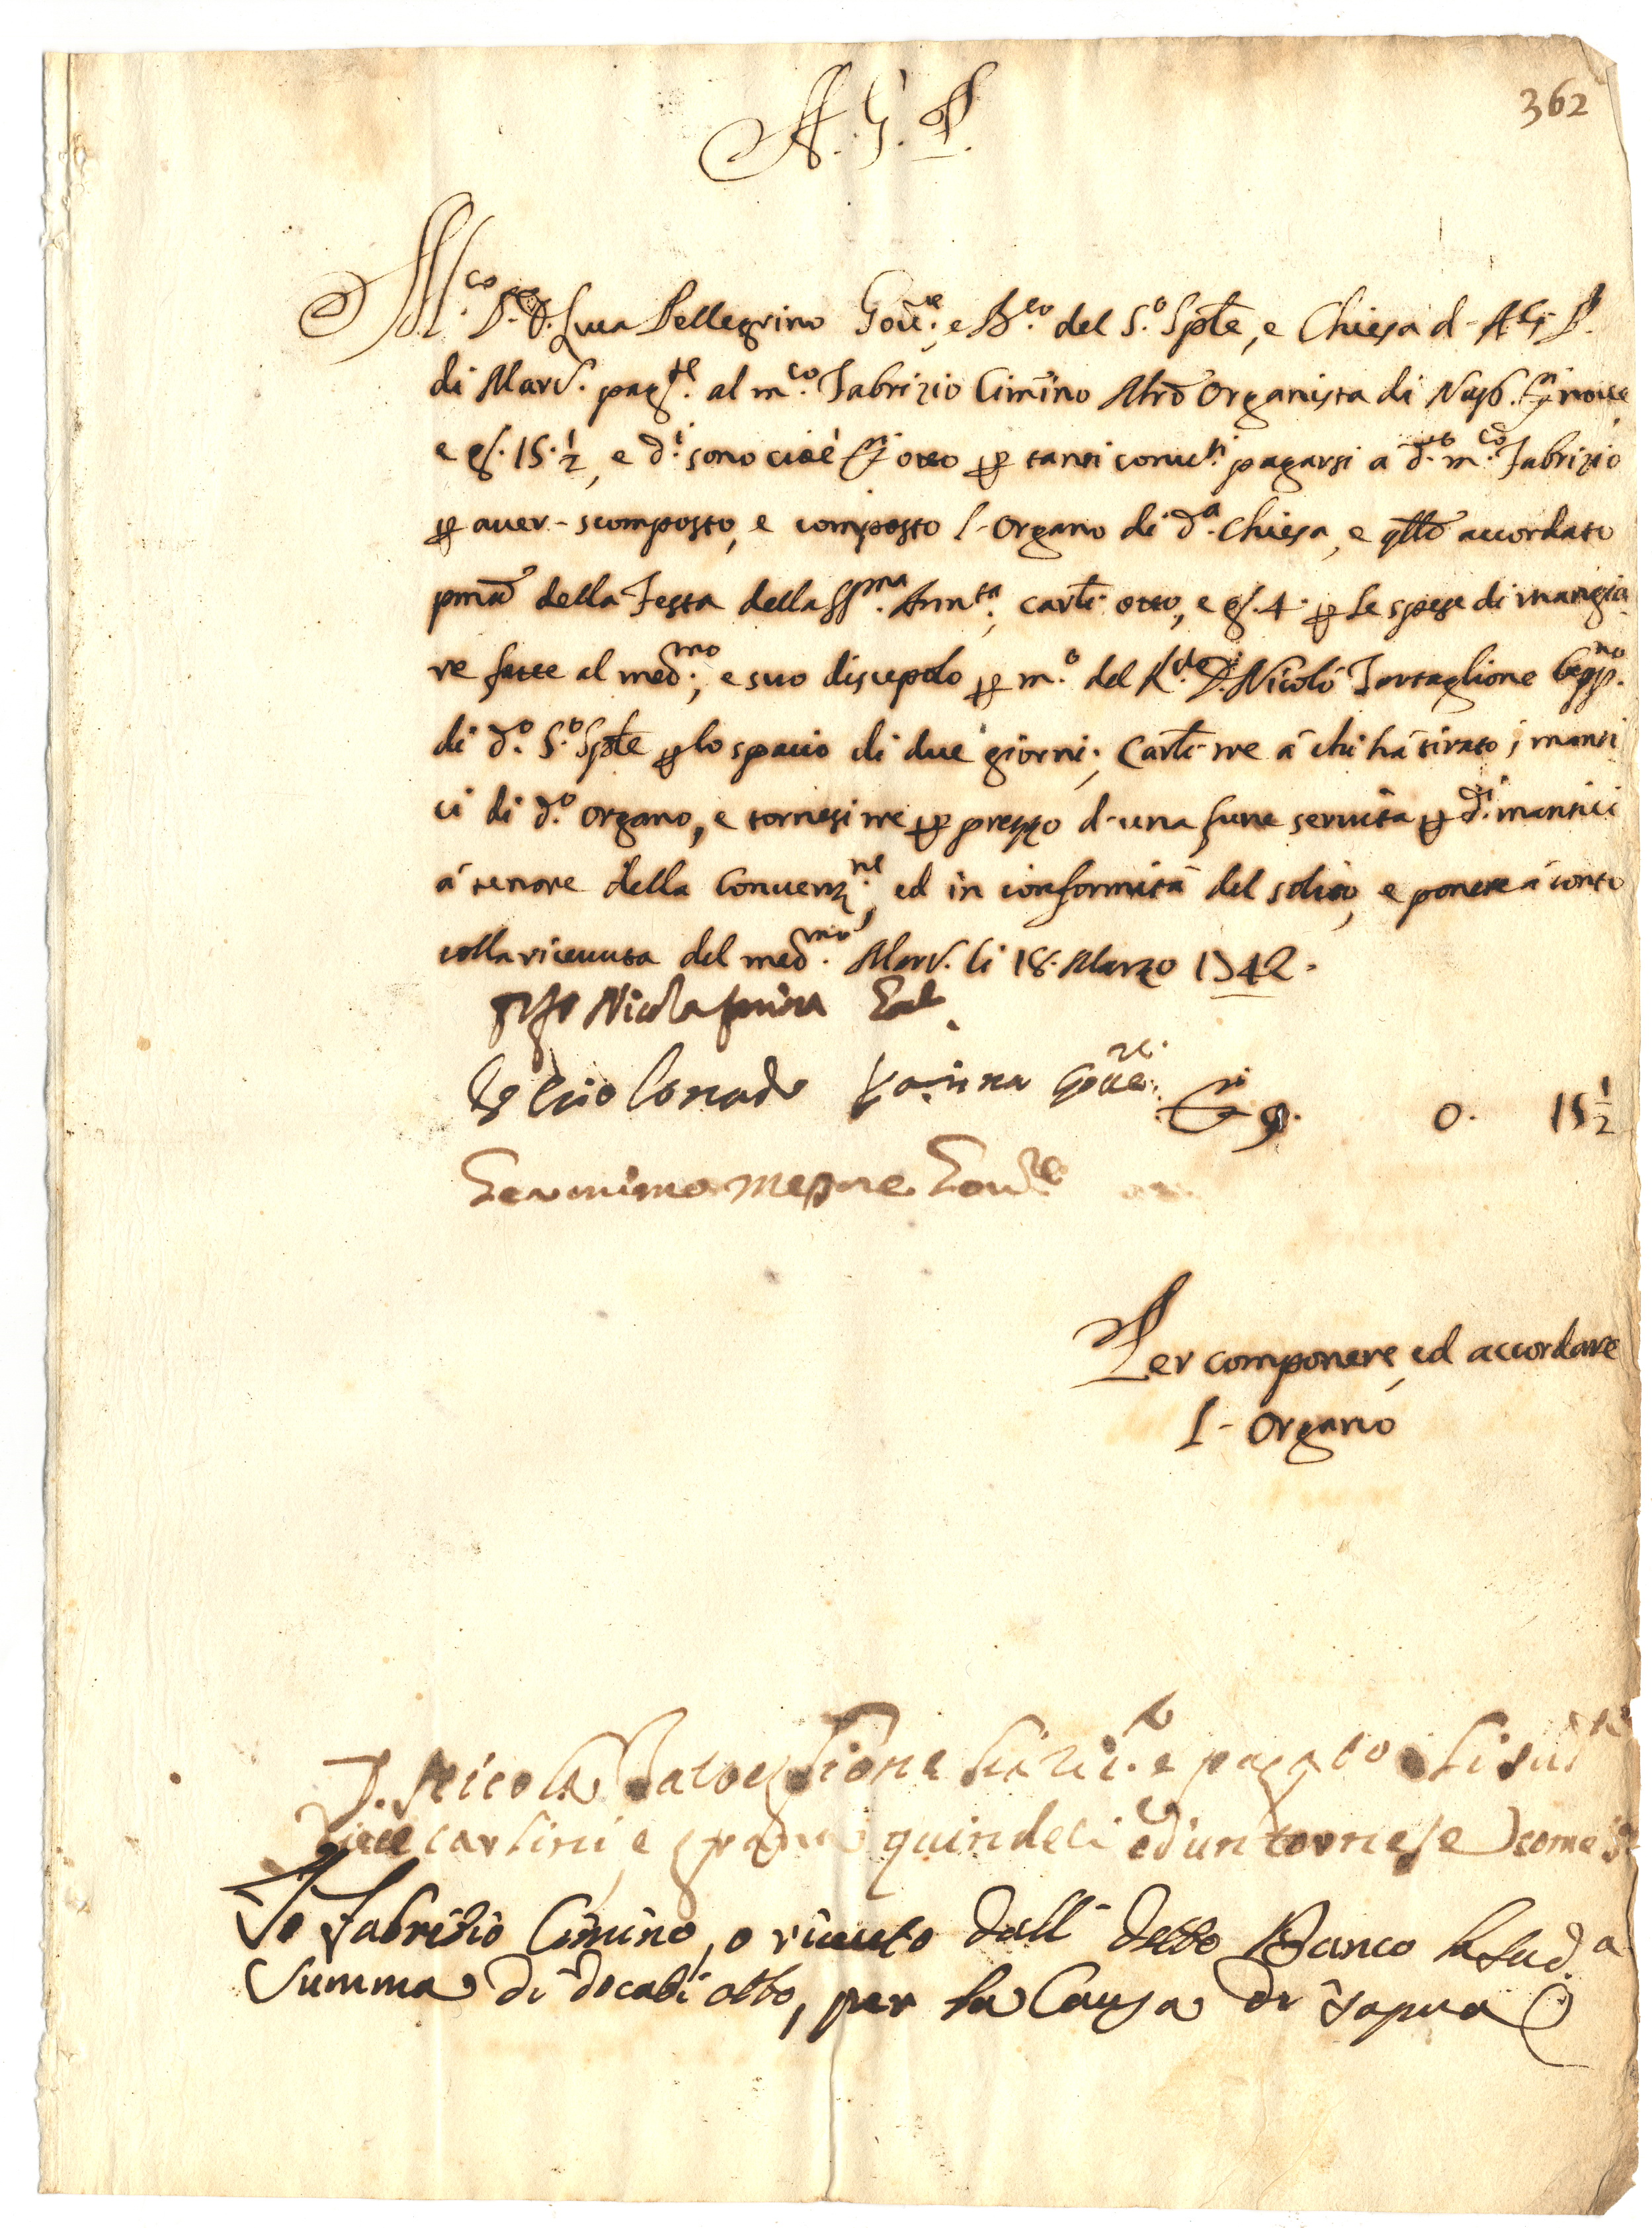 362
A. G. P.
M.co D.r D. Luca Pellegrino Gov.re, e B.co del S.o Sple, e Chiesa d-A G P.
di Marc.e pag.te al m.co Fabrizio Cimino Mro Organista di Nap. D.ti nove
e g.a 15 1/2, e d.i sono cioè D.ti otto per tanti conv.ti pagarsi a d.to m.co Fabrizio
per aver-scomposto, e composto l-Organo di d.a Chiesa, e qllo accordato
pma della Festa della SS.ma Ann.ta, carli otto, e g.a 4. per le spese di mangia
re fatte al med.mo, e suo discepolo per m.o del R.do D. Nicolò Tartaglione
di d.o S.o Sple per lo spacio di due giorni; Carli tre à chi hà tirato i manti
ci di d.o Organo, e tornesi tre per prezzo d-una fune servita per d.i mantici
à tenore della Convenz.ne, ed in conformità del solito, e ponete à conto
colla ricevuta del med.mo Marc.e li 18. Marzo 1742.
Nicola
Conrado Gove.re
Geronimo Gov.re
D.ti 9. 0. 15 1/2
Per componere, ed accordare
l-Organo
D. Nicola Tartaglione hà ric.to e pagato li sud.ti
carlini, e grana quindeci ed un tornese come s.a
Io Fabrizio Cimino, o riceuto dall detto Banco la sud.a
summa di docati otto, per la Causa di sopra